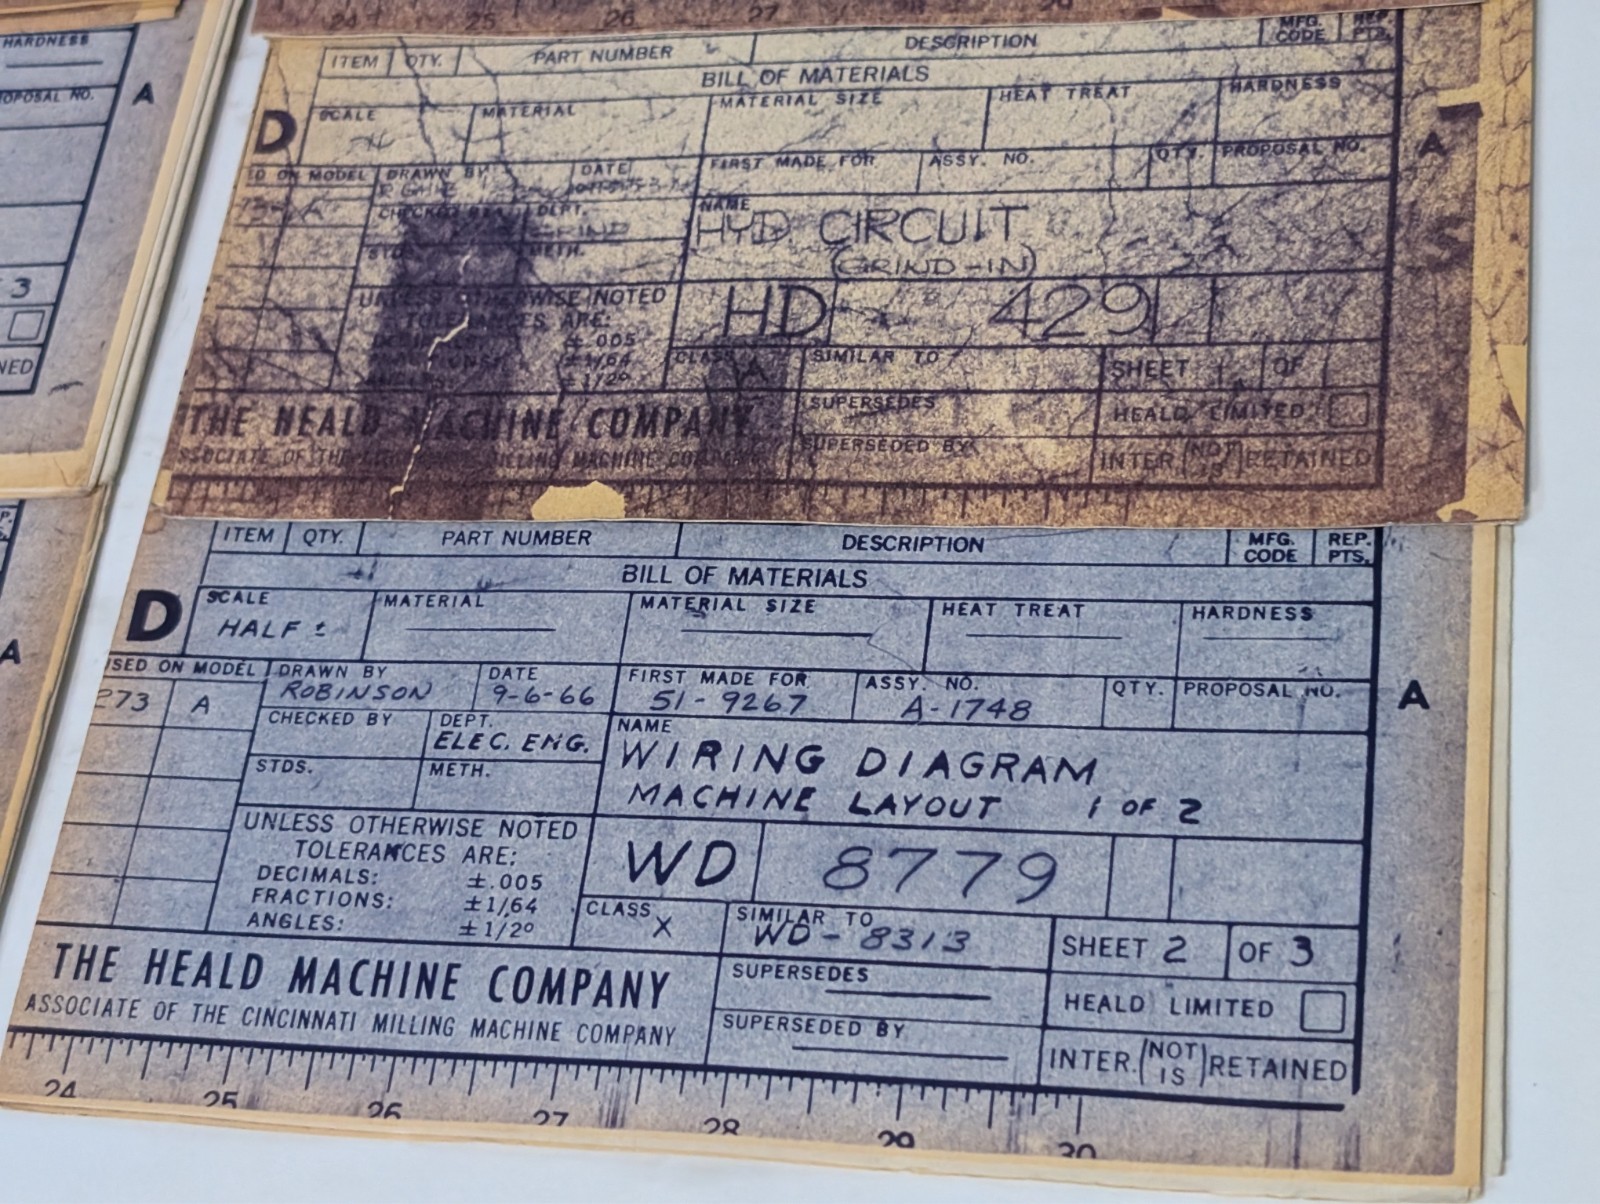 24 25 26 27
HARDNESS
OPOSAL NO.
A
3
NED
ITEM QTY. PART NUMBER DESCRIPTION MFG. CODE REP. PTS.
BILL OF MATERIALS
D SCALE MATERIAL MATERIAL SIZE HEAT TREAT HARDNESS
A
ED ON MODEL DRAWN BY DATE FIRST MADE FOR ASSY. NO. QTY. PROPOSAL NO.
CHECKED BY DEPT. NAME
HYD CIRCUIT
(GRIND-IN)
METH.
UNLESS OTHERWISE NOTED
TOLERANCES ARE:
± .005
± 1/64
± 1/2°
HD 429
CLASS A SIMILAR TO SHEET 1 OF 1
SUPERSEDES HEALD LIMITED
SUPERSEDED BY INTER. (NOT IS) RETAINED
THE HEALD MACHINE COMPANY
ASSOCIATE OF THE MILLING MACHINE COMPANY
P.
A
ITEM QTY. PART NUMBER DESCRIPTION MFG. CODE REP. PTS.
BILL OF MATERIALS
D SCALE MATERIAL MATERIAL SIZE HEAT TREAT HARDNESS
HALF ±
USED ON MODEL DRAWN BY DATE FIRST MADE FOR ASSY. NO. QTY. PROPOSAL NO.
273 A ROBINSON 9-6-66 51-9267 A-1748
A
CHECKED BY DEPT. NAME
ELEC. ENG.
WIRING DIAGRAM
STDS. METH.
MACHINE LAYOUT 1 OF 2
UNLESS OTHERWISE NOTED
TOLERANCES ARE:
DECIMALS: ±.005
FRACTIONS: ±1/64
ANGLES: ±1/2°
WD 8779
CLASS X SIMILAR TO WD-8313 SHEET 2 OF 3
SUPERSEDES HEALD LIMITED
SUPERSEDED BY INTER. (NOT IS) RETAINED
THE HEALD MACHINE COMPANY
ASSOCIATE OF THE CINCINNATI MILLING MACHINE COMPANY
24 25 26 27 28 29 30